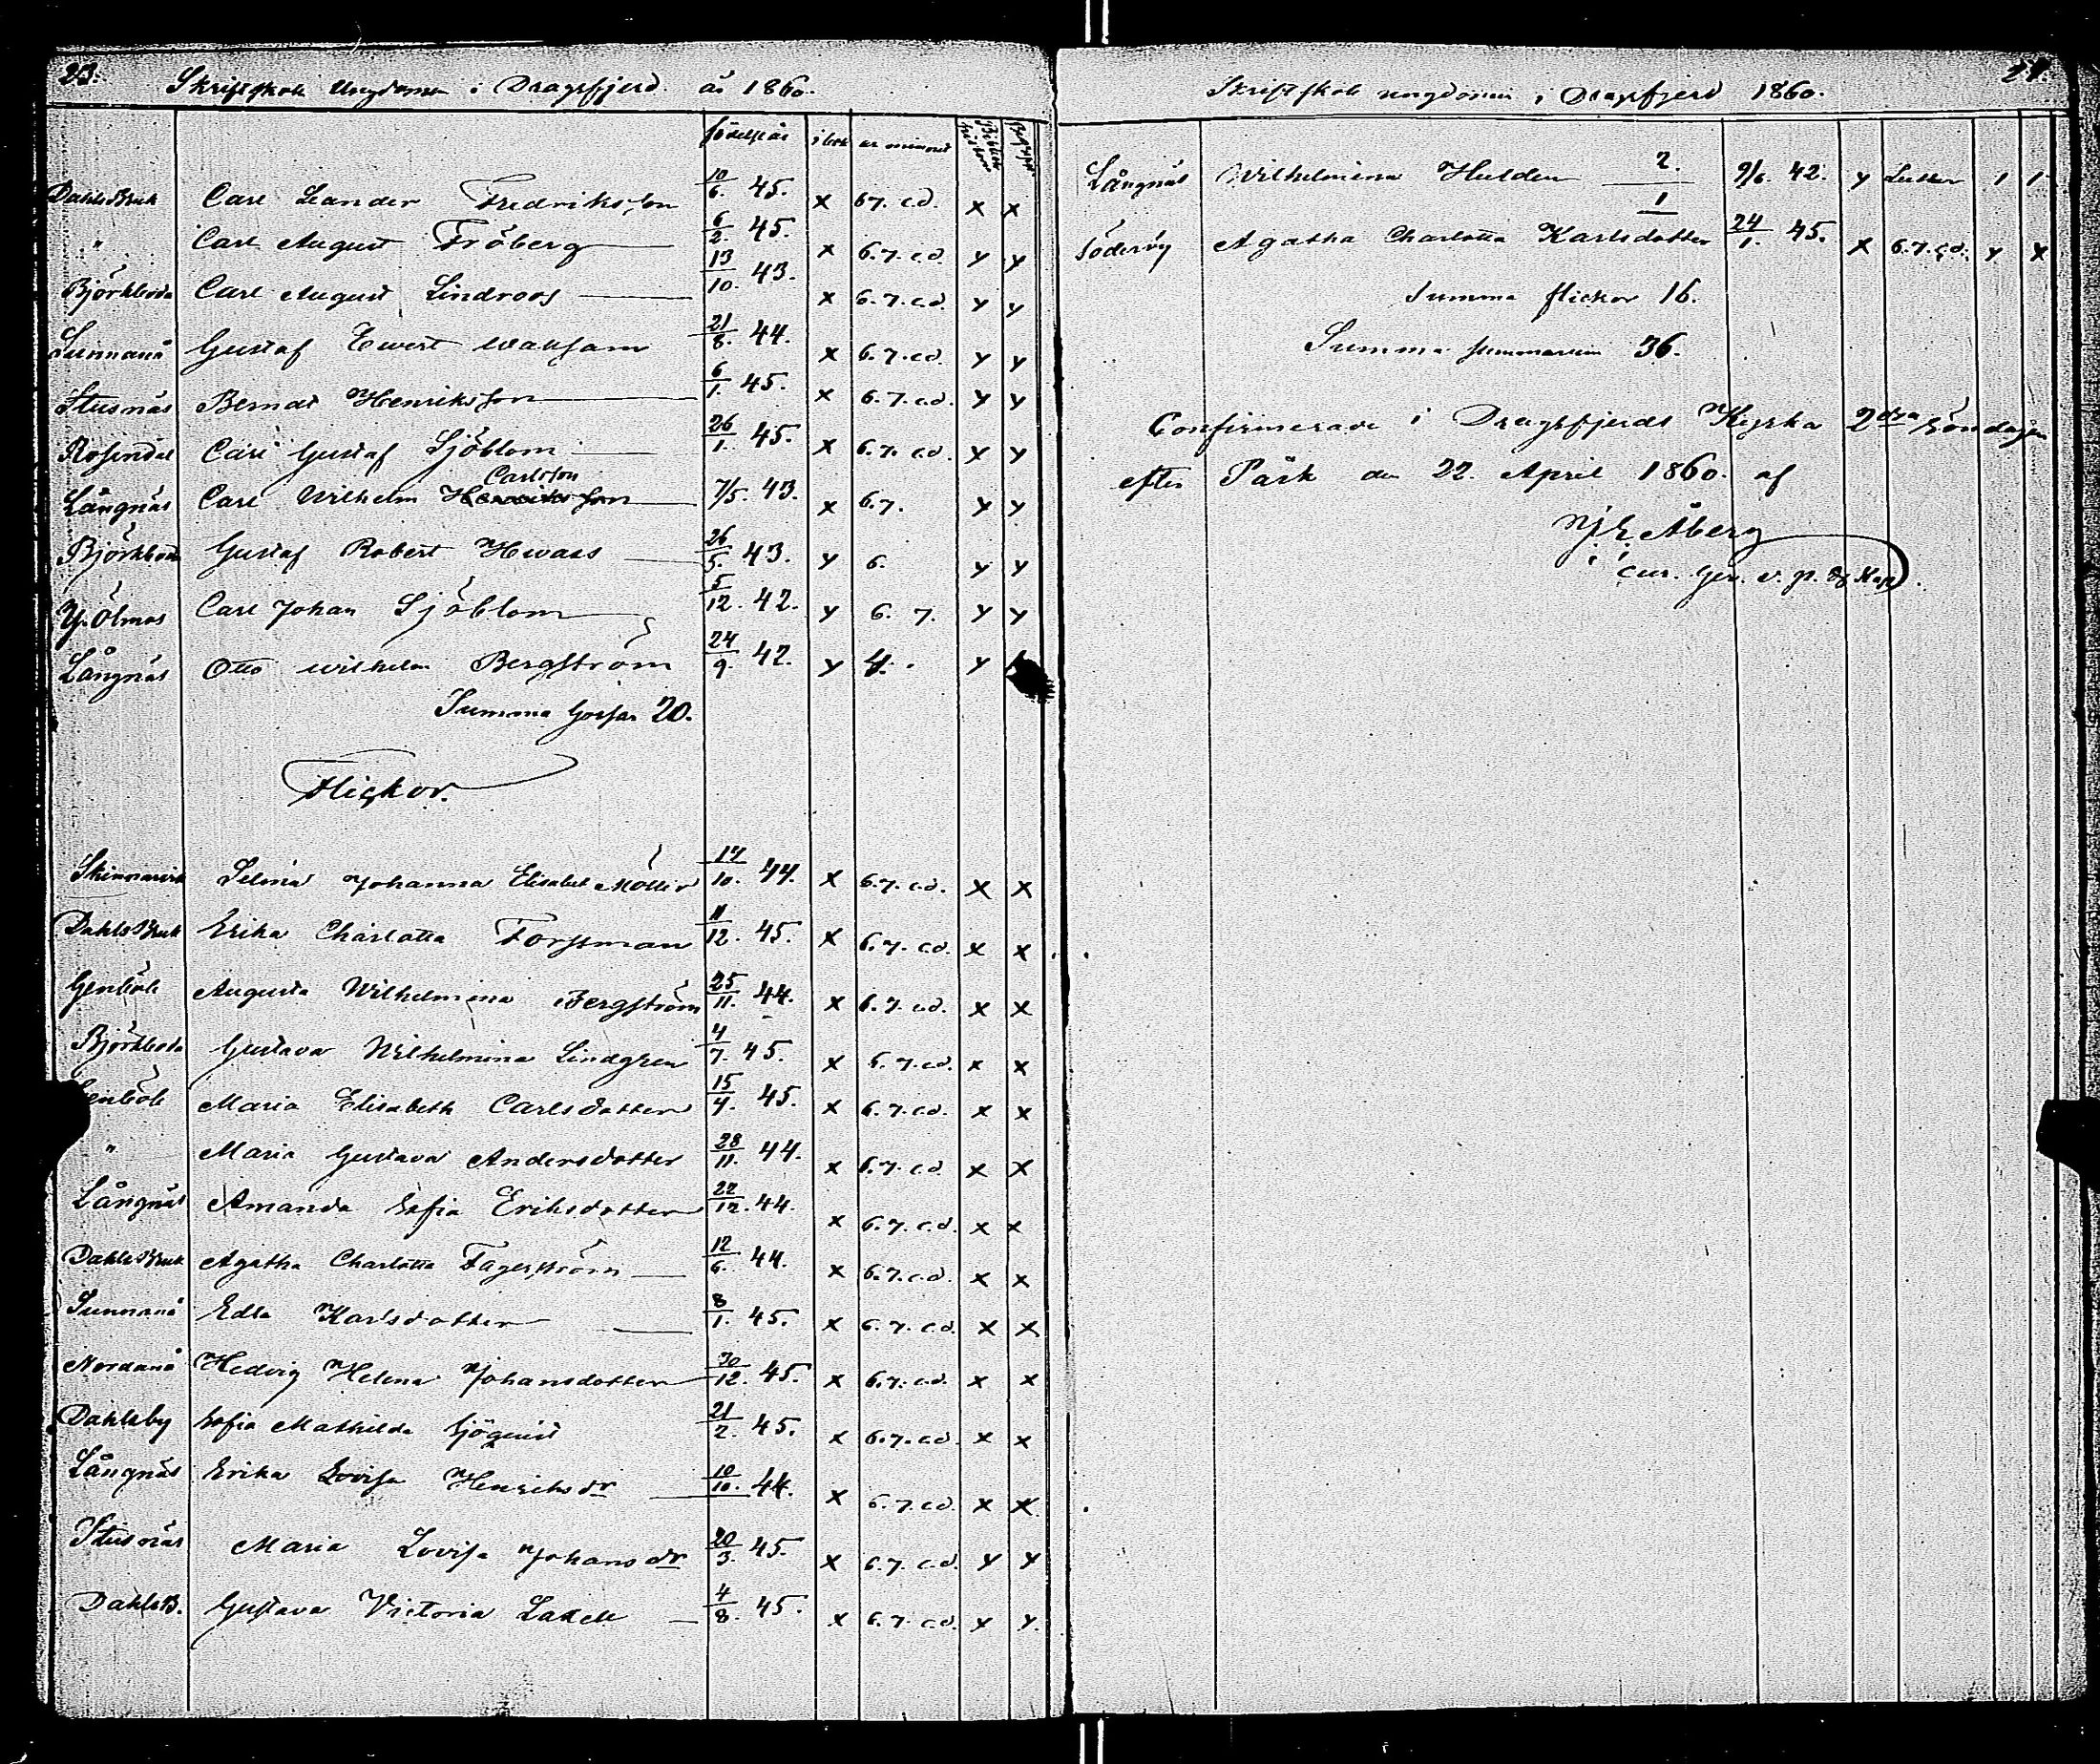 23.
Skriftskole Ungdomen i Dragsfjerd år 1860.
födelseår i bok ur minnet
Dahls Bruk Carl Leander Fredriksson 10/6. 45. x 67. c.d. x x
" Carl August Fröberg 6/2. 45. x 6.7. c.d. y y
Björkboda Carl August Lindroos 13/10. 43. x 6.7. c.d. y y
Sunnanå Gustaf Ewert 21/8. 44. x 6.7. c.d. y y
Stusnäs Berndt Henriksson 6/1. 45. x 6.7. c.d. y y
Rosendal Carl Gustaf Sjöblom 26/1. 45. x 6.7. c.d. x y
Carlsson
Långnäs Carl Wilhelm Henriksson 7/5. 43. x 6.7. y y
Björkboda Gustaf Robert Hwass 26/5. 43. y 6. y y
Y. Ölmos Carl Johan Sjöblom 5/12. 42. y 6. 7. y y
Långnäs Otto Wilhelm Bergström 24/9. 42. y 4. y
Summa Gossar 20.
Flickor.
Skinnarvik Selma Johanna Elisabet Möller 17/10. 44. x 6.7. c.d. x x
Dahls Bruk Erika Charlotta Forssman 11/12. 45. x 6.7. c.d. x x
Genböle Augusta Wilhelmina Bergström 25/11. 44. x 6.7. c.d. x x
Björkboda Gustava Wilhelmina Lindgren 4/7. 45. x 6.7. c.d. x x
Genböle Maria Elisabeth Carlsdotter 15/4. 45. x 6.7. c.d. x x
" Maria Gustava Andersdotter 28/11. 44. x 6.7. c.d. x x
Långnäs Amanda Sofia Eriksdotter 22/12. 44. x 6.7. c.d. x x
Dahls Bruk Agatha Charlotta Fagerström 12/6. 44. x 6.7. c.d. x x
Sunnanå Edla Karlsdotter 8/1. 45. x 6.7. c.d. x x
Nordanå Hedvig Helena Johansdotter 30/12. 45. x 6.7. c.d. x x
Dahlsby Sofia Mathilda Sjöqvist 21/2. 45. x 6.7. c.d. x x
Långnäs Erika Lovisa Henriksdr 10/10. 44. x 6.7. c.d. x x
Stusnäs Maria Lovisa Johansdr 20/3. 45. x 6.7. c.d. y y
Dahls B. Gustava Victoria Laxell 4/8. 45. x 6.7. c.d. y y.
24.
Skriftskole ungdomen i Dragsfjerd 1860.
Långnäs Wilhelmina Hulden 2./1 9/6. 42. y 1 1
Söderby Agatha Charlotta Karlsdotter 24/1. 45. x 6.7. c.d. y x
Summa flickor 16.
Summa summarum 36.
Confirmerade i Dragsfjerds Kyrka 2dra söndagen
efter Påsk den 22. April 1860. af
Åberg